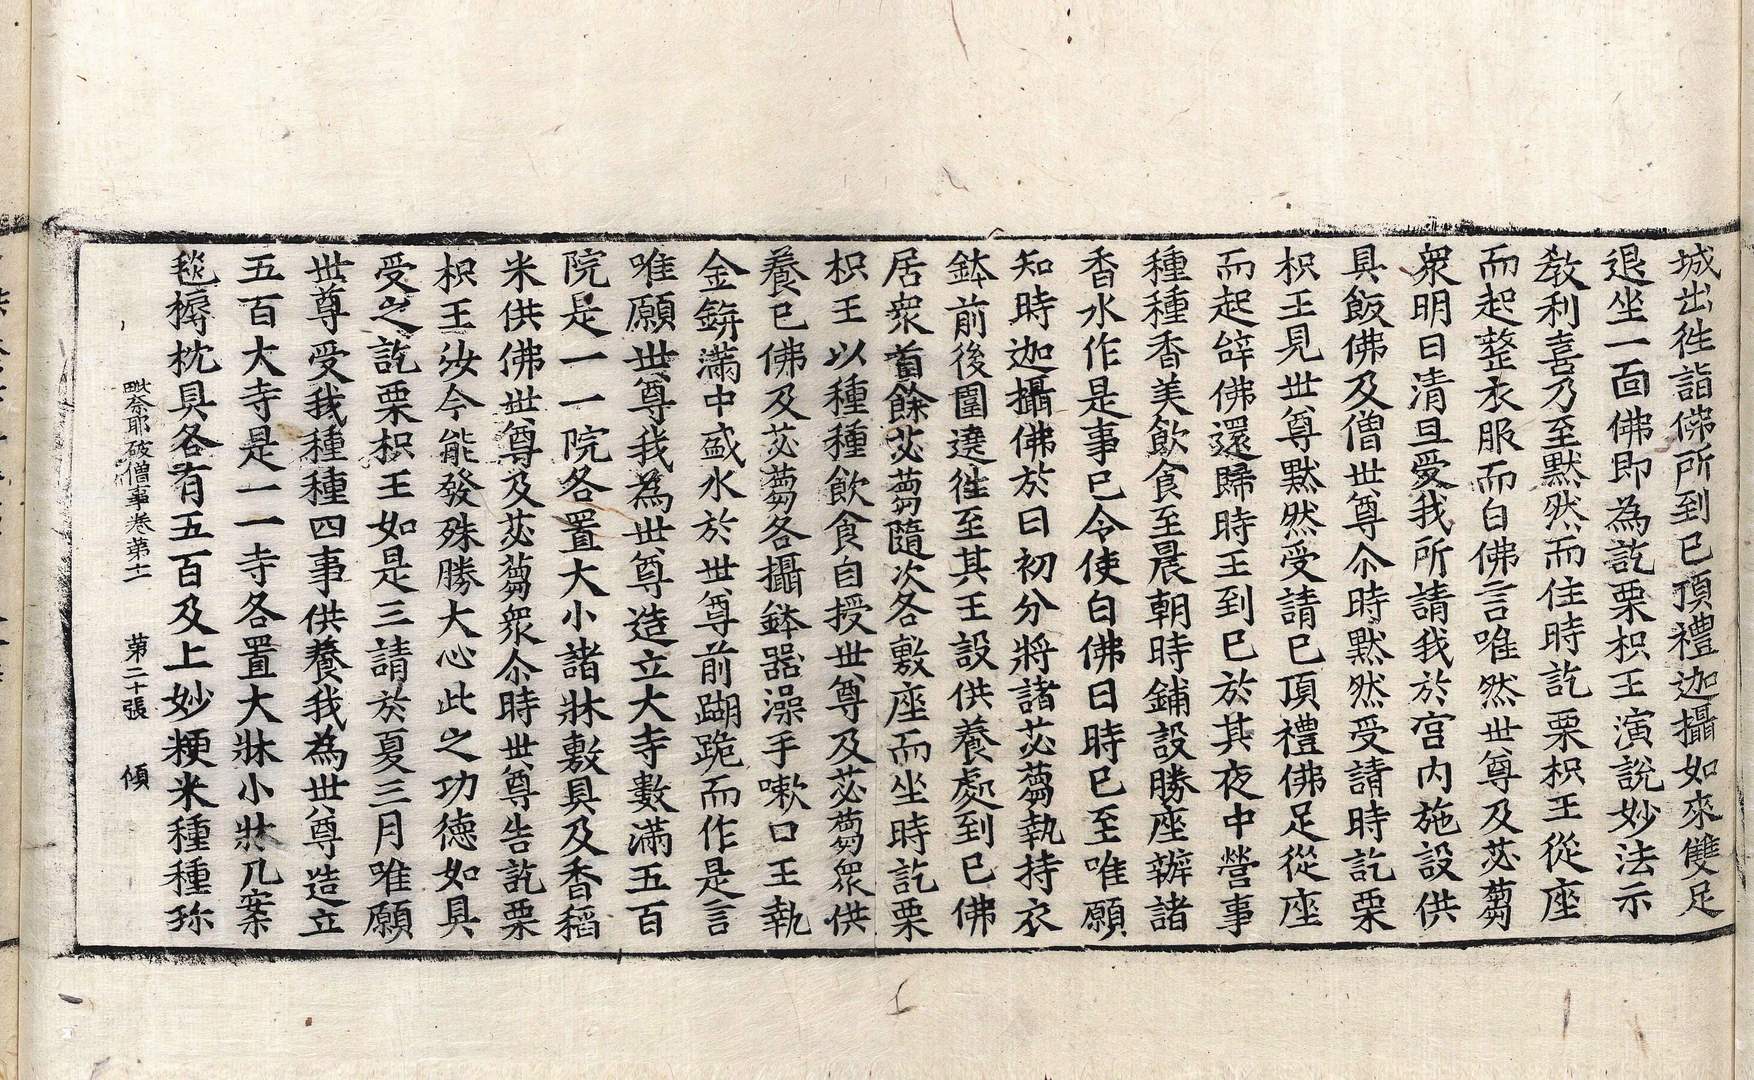 城出徃詣佛所到已頂禮迦攝如來雙足
退坐一面佛即為訖栗枳王演說妙法示
教利喜乃至默然而住時訖栗枳王從座
而起整衣服而白佛言唯然世尊及苾蒭
衆明日清旦受我所請我於宮內施設供
具飯佛及僧世尊尒時默然受請時訖栗
枳王見世尊默然受請已頂禮佛足從座
而起辝佛還歸時王到已於其夜中營事
種種香美飲食至晨朝時鋪設勝座辦諸
香水作是事已令使白佛日時已至唯願
知時迦攝佛於日初分將諸苾蒭執持衣
鉢前後圍遶徃至其王設供養處到已佛
居衆首餘苾蒭隨次各敷座而坐時訖栗
枳王以種種飲食自授世尊及苾蒭衆供
養已佛及苾蒭各攝鉢器澡手嗽口王執
金鉼滿中盛水於世尊前蹦跪而作是言
唯願世尊我為世尊造立大寺數滿五百
院是一一院各置大小諸牀敷具及香稻
米供佛世尊及苾蒭衆尒時世尊告訖栗
枳王汝今能發殊勝大心此之功德如具
受之訖栗枳王如是三請於夏三月唯願
世尊受我種種四事供養我為世尊造立
五百大寺是一一寺各置大牀小牀几案
毯褥枕具各有五百及上妙粳米種種珎
毗奈耶破僧事卷第十一 第二十張 傾